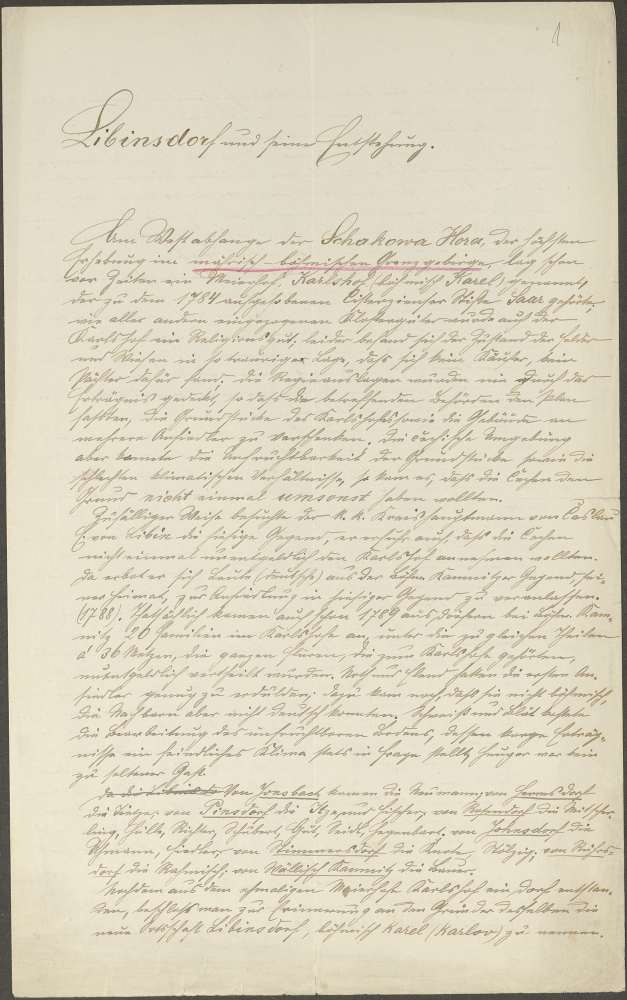 1
Libinsdorf und seine Entstehung.
Am Westabhange der Schakowa Hora, der höchsten
Erhebung im mährisch-böhmischen Grenzgebirge, lag schon
vor Zeiten ein Meierhof, Karlshof (böhmisch Karel) genannt,
der zu dem 1784 aufgehobenen Cistercienser Stifte Saar gehörte,
wie aller andern eingezogenen Klostergüter wurde auch der
Karlshof ein Religionsgut. leider befand sich der Zustand der Felder
und Wiesen in so trauriger Lage, daß sich kein Käufer, kein
Pächter dafür fand. die Regieauslagen wurden nie durch das
Erträgnis gedeckt, so daß die betreffenden Behörden den Plan
faßten, die Grundstücke des Karlshofes sowie die Gebäude an
mehrere Ansiedler zu verschenken. Die čechische Umgebung
aber kannte die Unfruchtbarkeit der Grundstücke sowie die
schlechten klimatischen Verhältnisse, so kam es, daß die Čechen den
Grund nicht einmal umsonst haben wollten.
Zufälliger Weise besuchte der k. k. Kreishauptmann von Časlau
H. von Libin die hiesige Gegend, er erfuhr auch, daß die Čechen
nicht einmal unentgeldlich den Karlshof annehmen wollten.
da erbot er sich Leute (deutsche) aus der Böhm. Kamnitzer Gegend, sei-
ner Heimat, zur Ansiedlung in hiesiger Gegend zu veranlassen.
(1788). Thatsächlich kamen auch schon 1789 aus Dörfern bei Böhm. Kam-
nitz 20 Familien im Karlshofe an, unter die zu gleichen Theilen
á 36 Metzen, die ganzen Fluren, die zum Karlshofe gehörten,
unentgeldlich vertheilt wurden. Noth und Elend hatten die ersten An-
siedler genug zu erdulden; dazu kam noch, daß sie nicht böhmisch,
die Nachbarn aber nicht deutsch konnten. Schweiß und Blut kostete
die Bearbeitung des unfruchtbaren Bodens, dessen karge Erträg-
nisse ein feindliches Klima stets in Frage stellt, Hunger war kein
zu seltener Gast.
Von Jonsbach kamen die Neumann, von Hermsdorf
die Dietze, von Pinsdorf die und Fischer, von Rosendorf die Mitscher-
ling, Hülle, Richter, Schubert, Seidl, Hegenbart, von Johnsdorf die
Ohmann, Fiedler, von Limmersdorf die Knote, von
dorf die von Wällisch Kamnitz die Bauer.
Nachdem aus dem ehemaligen Meierhofe Karlshof ein Dorf entstan-
den, beschloß man zur Erinnerung an den Gründer desselben die
neue Ortschaft Libinsdorf, böhmisch Karel (Karlov) zu nennen.